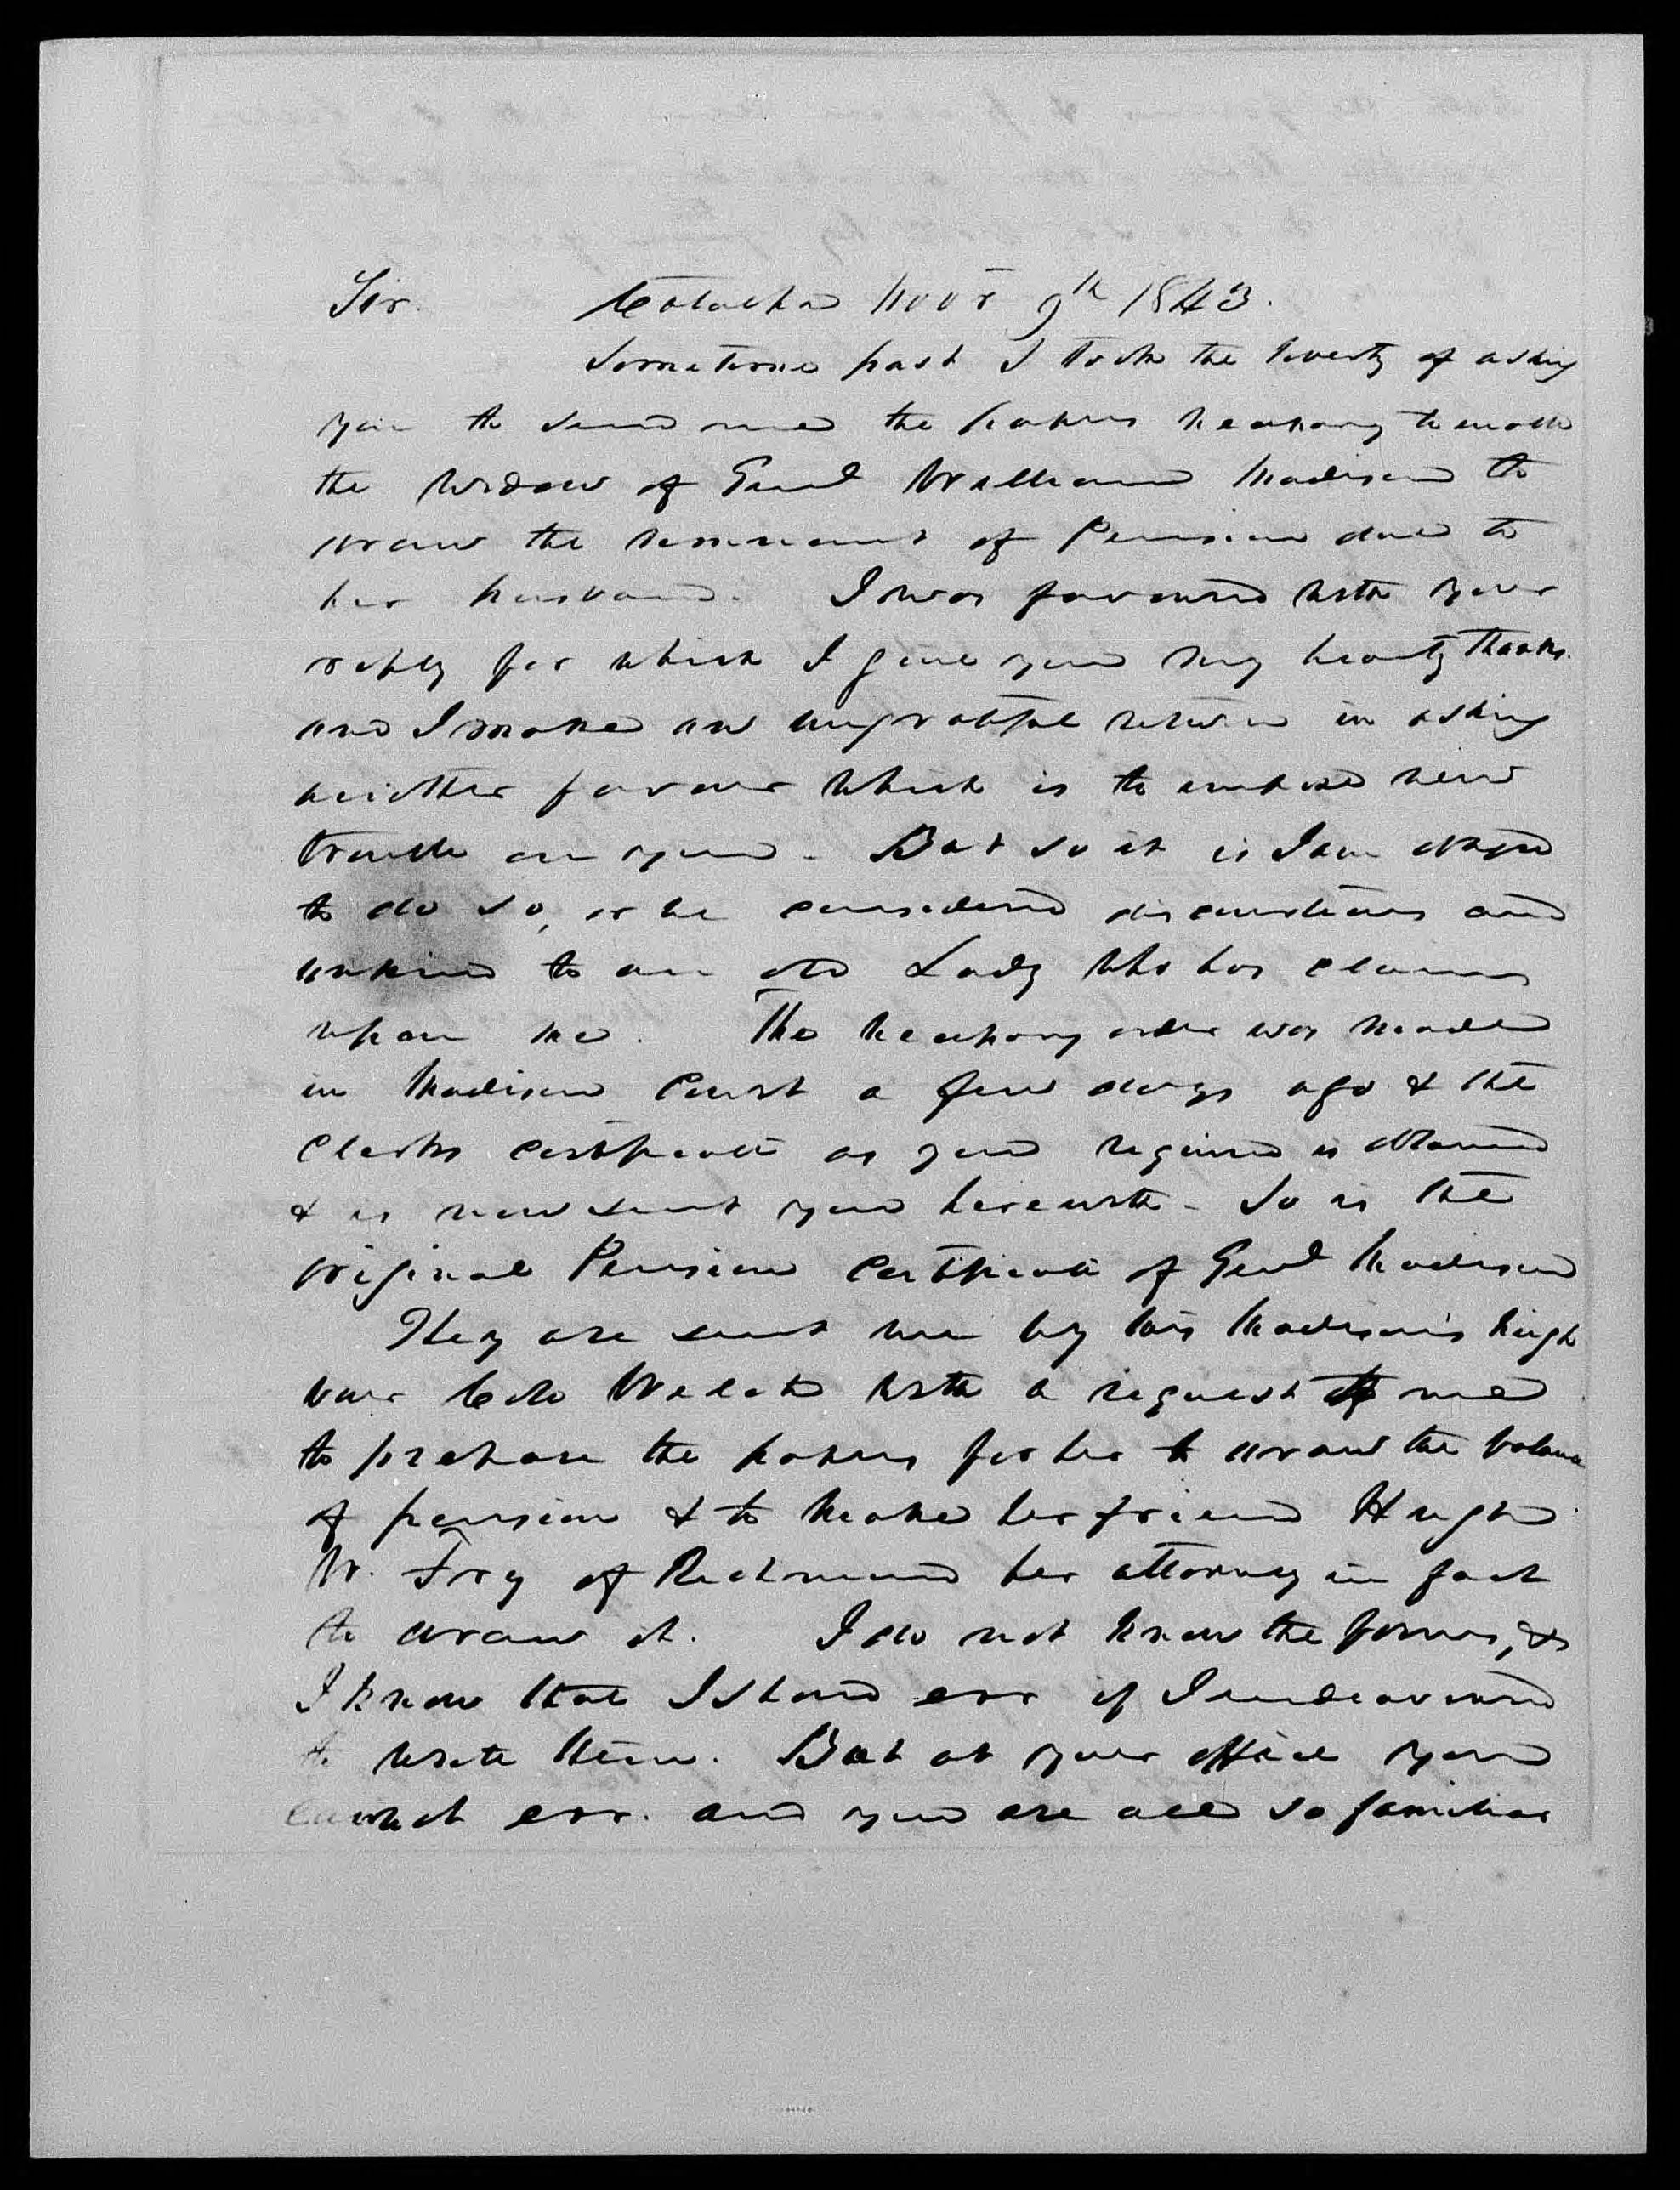 Sir. Novr 9th 1843.
Sometime past I took the liberty of asking
you to send me the papers necessary to enable
the widow of Genl William Madison to
draw the remnant of Pension due to
her husband. I was favoured with your
reply for which I give you my hearty thanks.
and I make an ungrateful return in asking
another favour which is to impose new
trouble on you - But so it is I am obliged
to do so, or be considered discourteous and
unkind to an old Lady who has claims
upon me. The necessary order was made
in Madison Court a few days ago & the
Clerks certificate as you required is obtained
& is now sent you herewith - So is the
original Pension Certificate of Genl Madison
They are sent me by Mrs Madison's neigh
bour Colo Welch with a request to me
to prepare the papers for her to draw the balance
of pension & to make her friend Hugh
W. Fry of Richmond her attorney in fact
to draw it. I do not know the forms, &
I know that I should err if I endeavoured
to write them. But at your office you
cannot err. and you are all so familiar